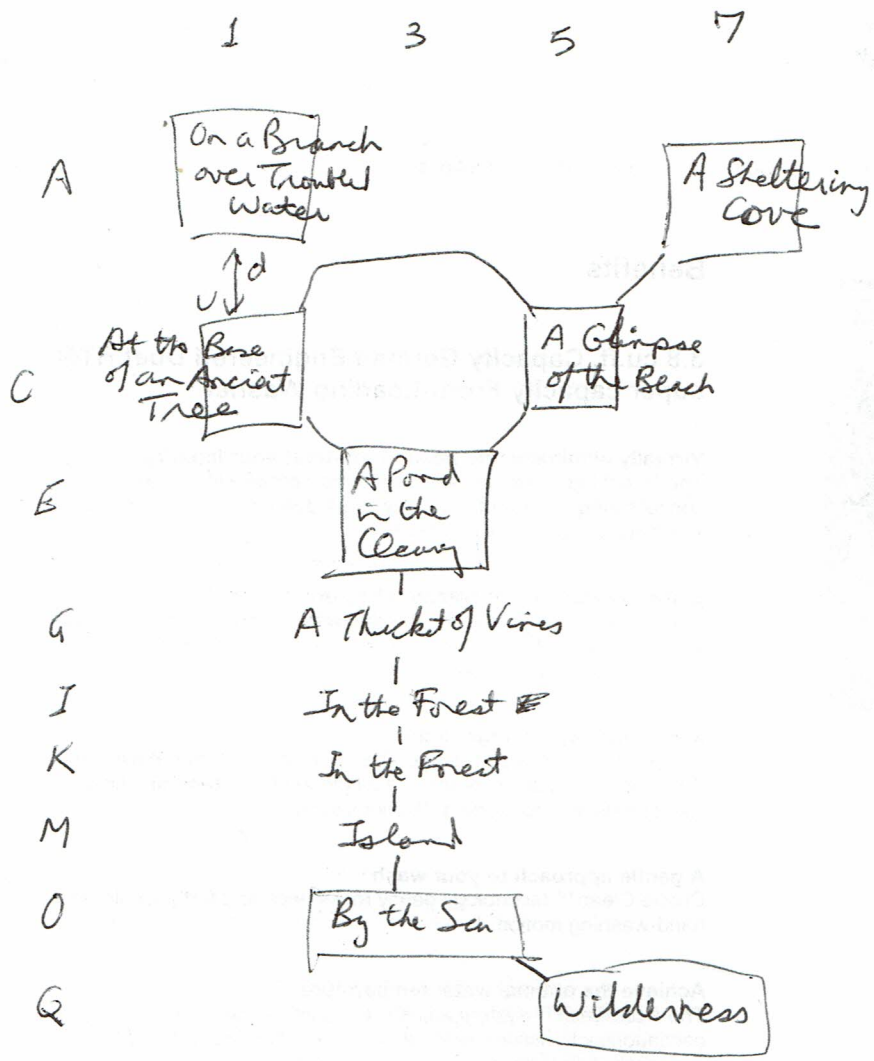 1 3 5 7
A
On a Branch
over Troubled
Water
A Sheltering
Cove
d
U
C
At the Base
of an Ancient
Tree
A Glimpse
of the Beach
E
A Pond
in the
Clearing
G
A Thicket of Vines
I
In the Forest
K
In the Forest
M
Island
O
By the Sea
Q
Wilderness
Benefits
A gentle approach to your wash